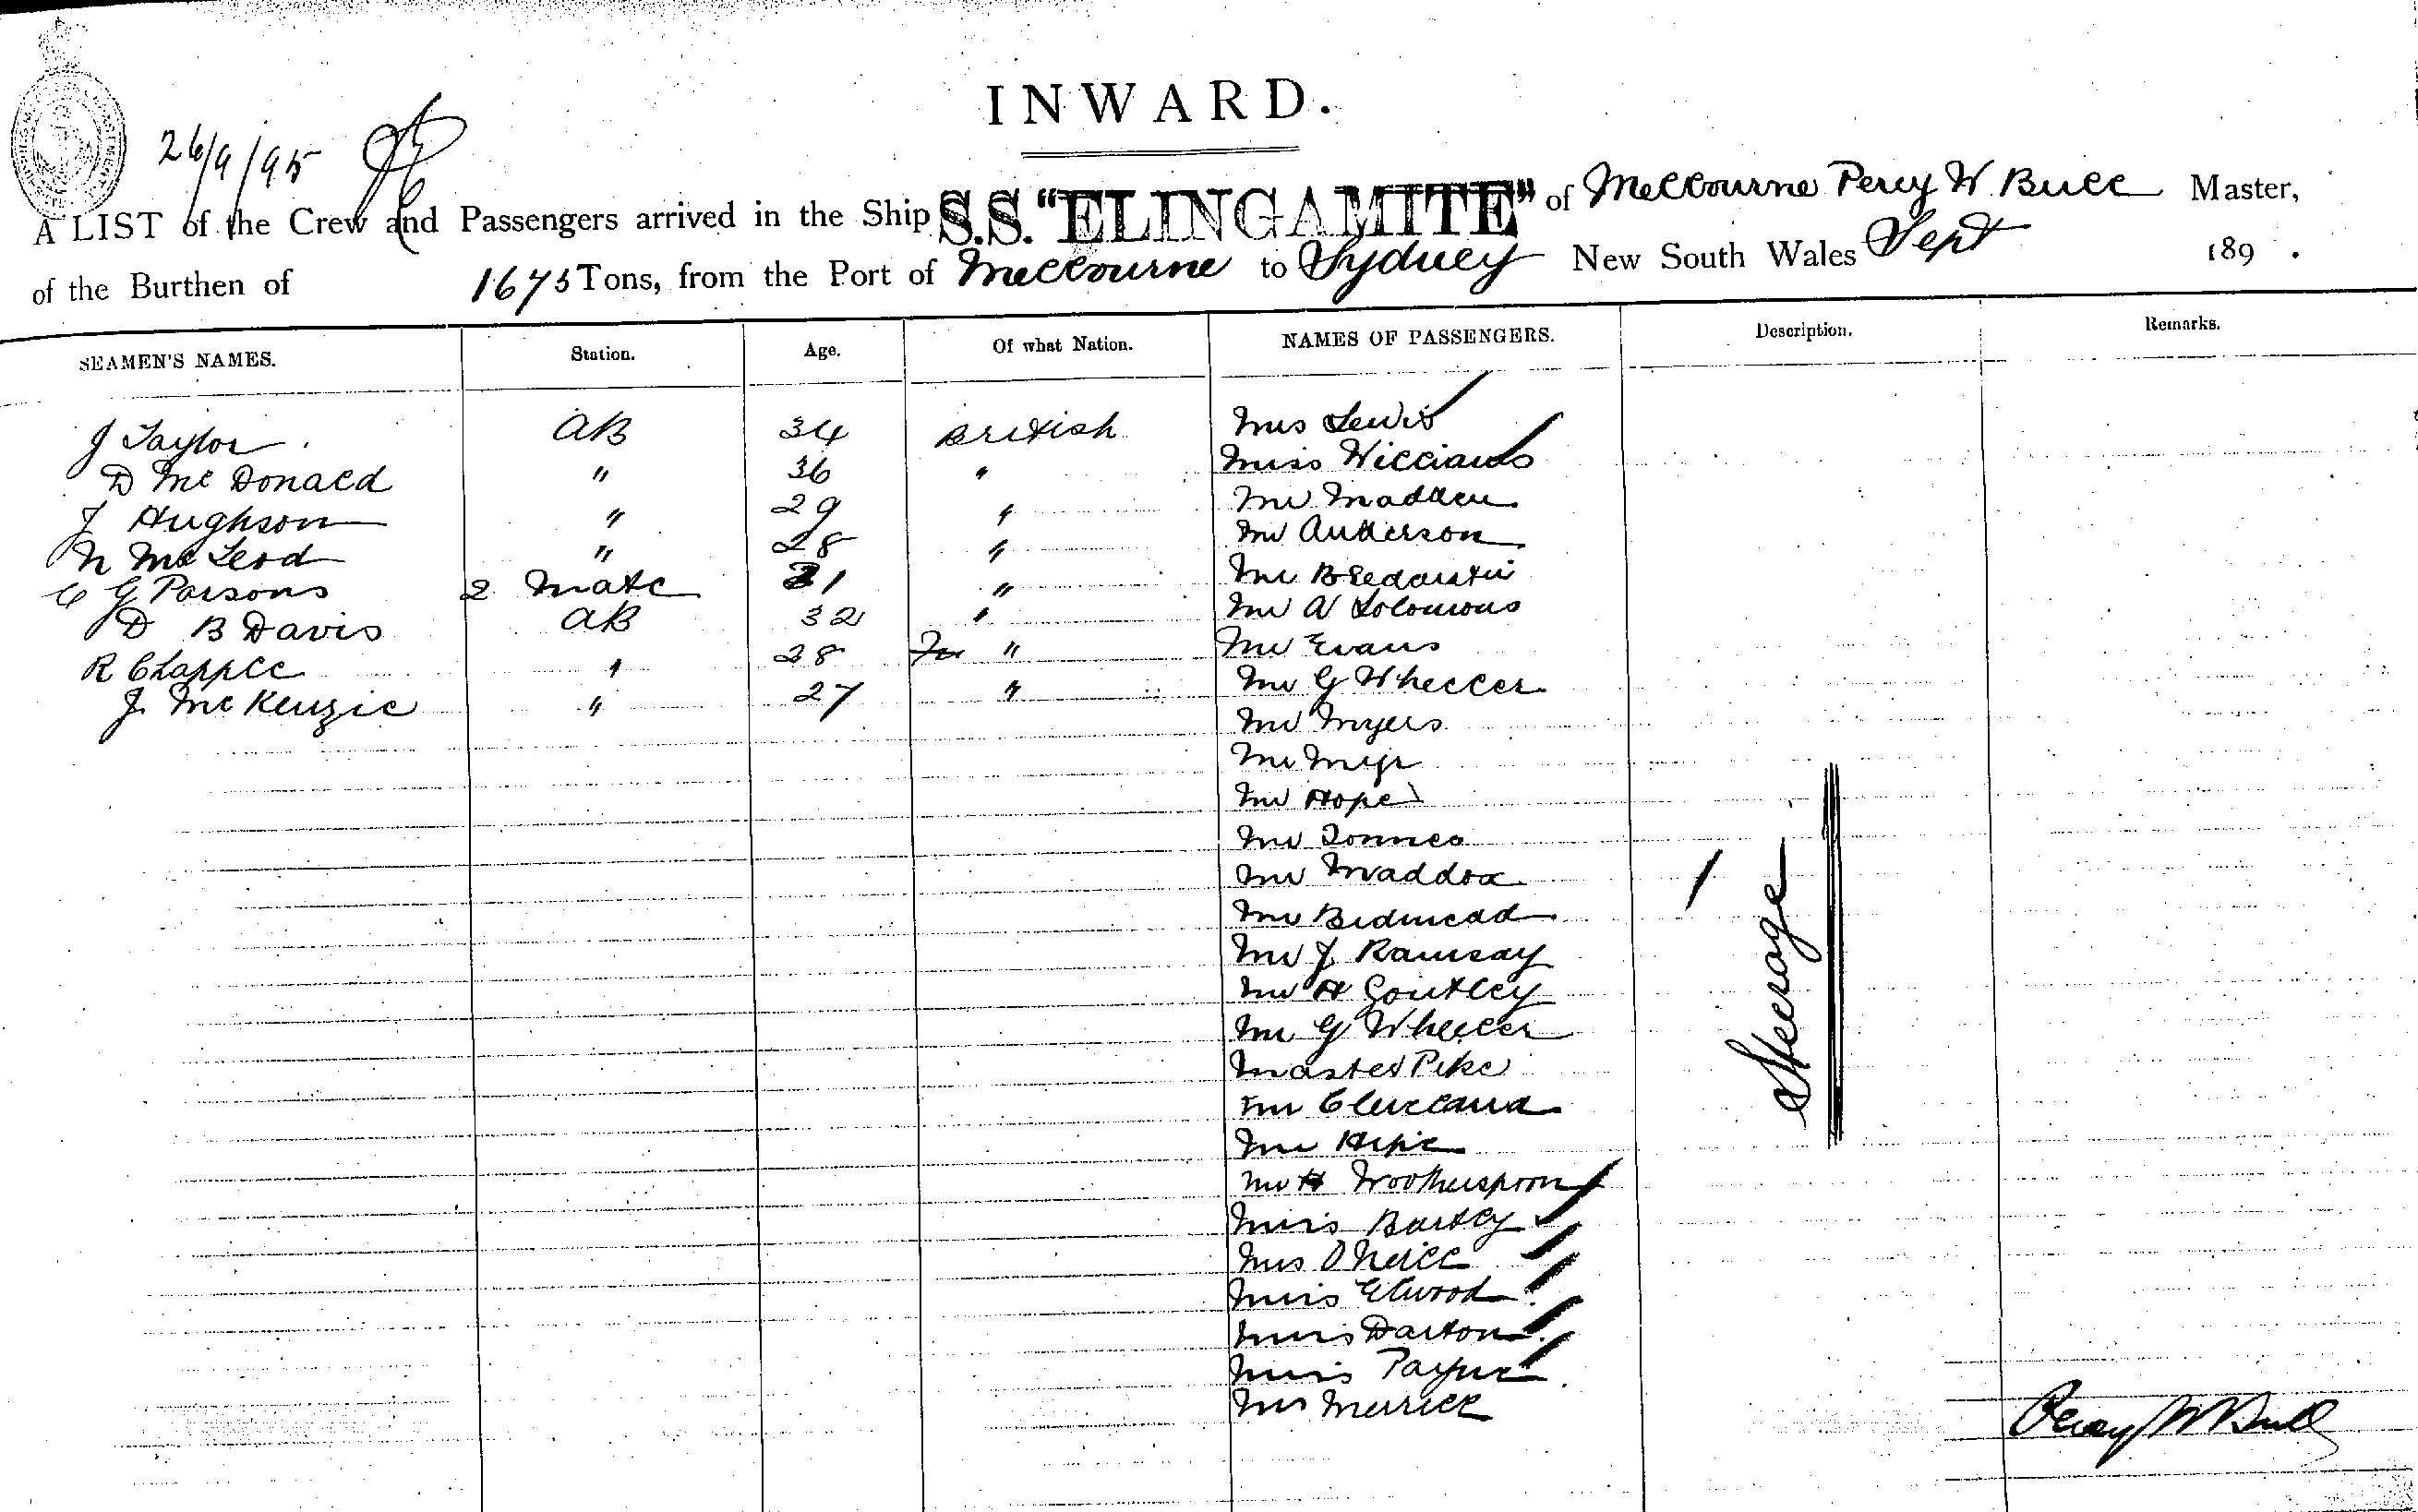 INWARD.
26/9/95
A LIST of the Crew and Passengers arrived in the Ship S.S. "ELINGAMITE" of Melbourne Percy W. Bull Master,
of the Burthen of 1675 Tons, from the Port of Melbourne to Sydney New South Wales Sept 189 .
SEAMEN'S NAMES. Station. Age. Of what Nation. NAMES OF PASSENGERS. Description. Remarks.
J Taylor AB 34 British Mrs Lewis
D McDonald " 36 " Miss Williams
J Hughson " 29 " Mr Madden
N McLeod " 28 " Mr Anderson
C G Parsons 2 Mate 31 " Mr
D B Davis AB 32 " Mr A Solomons
R Chapple " 28 " Mr Evans
J McKenzie " 27 " Mr G Wheeler
Mr Myers
Mr
Mr Hope
Mr
Mr Maddox
Mr Bidmead
Mr J Ramsay
Mr H
Mr G Wheeler
Master Pike
Mr Cleveland
Mr
Mr H Wootherspoon
Miss Bartley
Mrs O'Neill
Miss Elwood
Miss Darton
Miss Payne
Mrs Merrick
Steerage
Percy W Bull